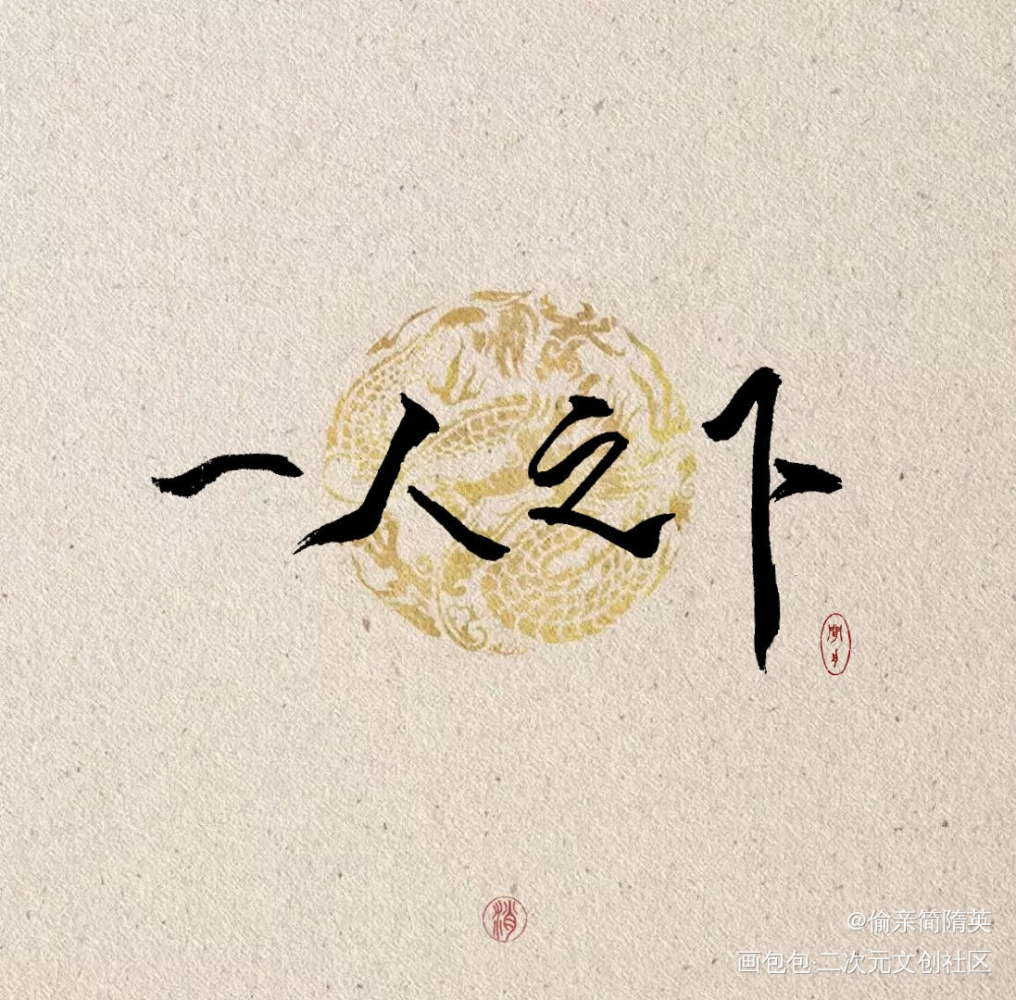 一人之下
消
@偷亲简隋英
画包包·二次元文创社区